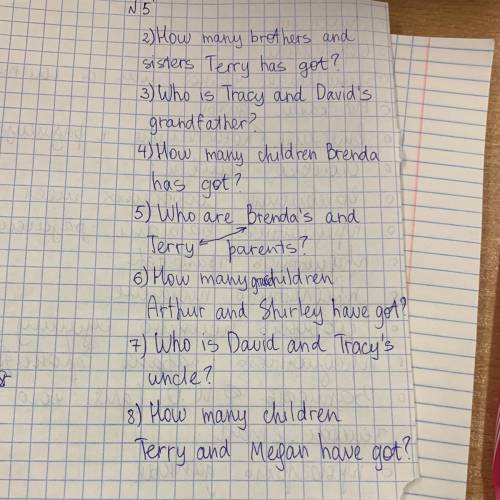 №5
2) How many brothers and
sisters Terry has got?
3) Who is Tracy and David's
grandfather?
4) How many children Brenda
has got?
5) Who are Brenda's and
Terry parents?
6) How many grandchildren
Arthur and Shirley have got?
7) Who is David and Tracy's
uncle?
8) How many children
Terry and Megan have got?